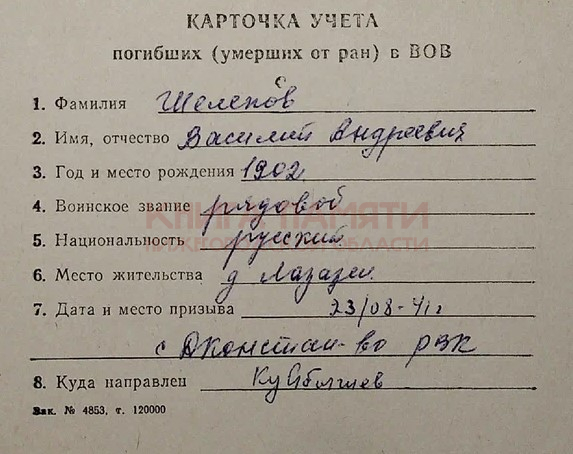 КАРТОЧКА УЧЕТА
погибших (умерших от ран) в ВОВ
1. Фамилия Шелепов
2. Имя, отчество Василий Андреевич
3. Год и место рождения 1902
4. Воинское звание рядовой
КНИГА ПАМЯТИ
5. Национальность русский
НИЖЕГОРОДСКОЙ ОБЛАСТИ
6. Место жительства д Лазазеи
7. Дата и место призыва 23/08-41г
с Дконстан-во РВК
8. Куда направлен
Зак. № 4853, т. 120000